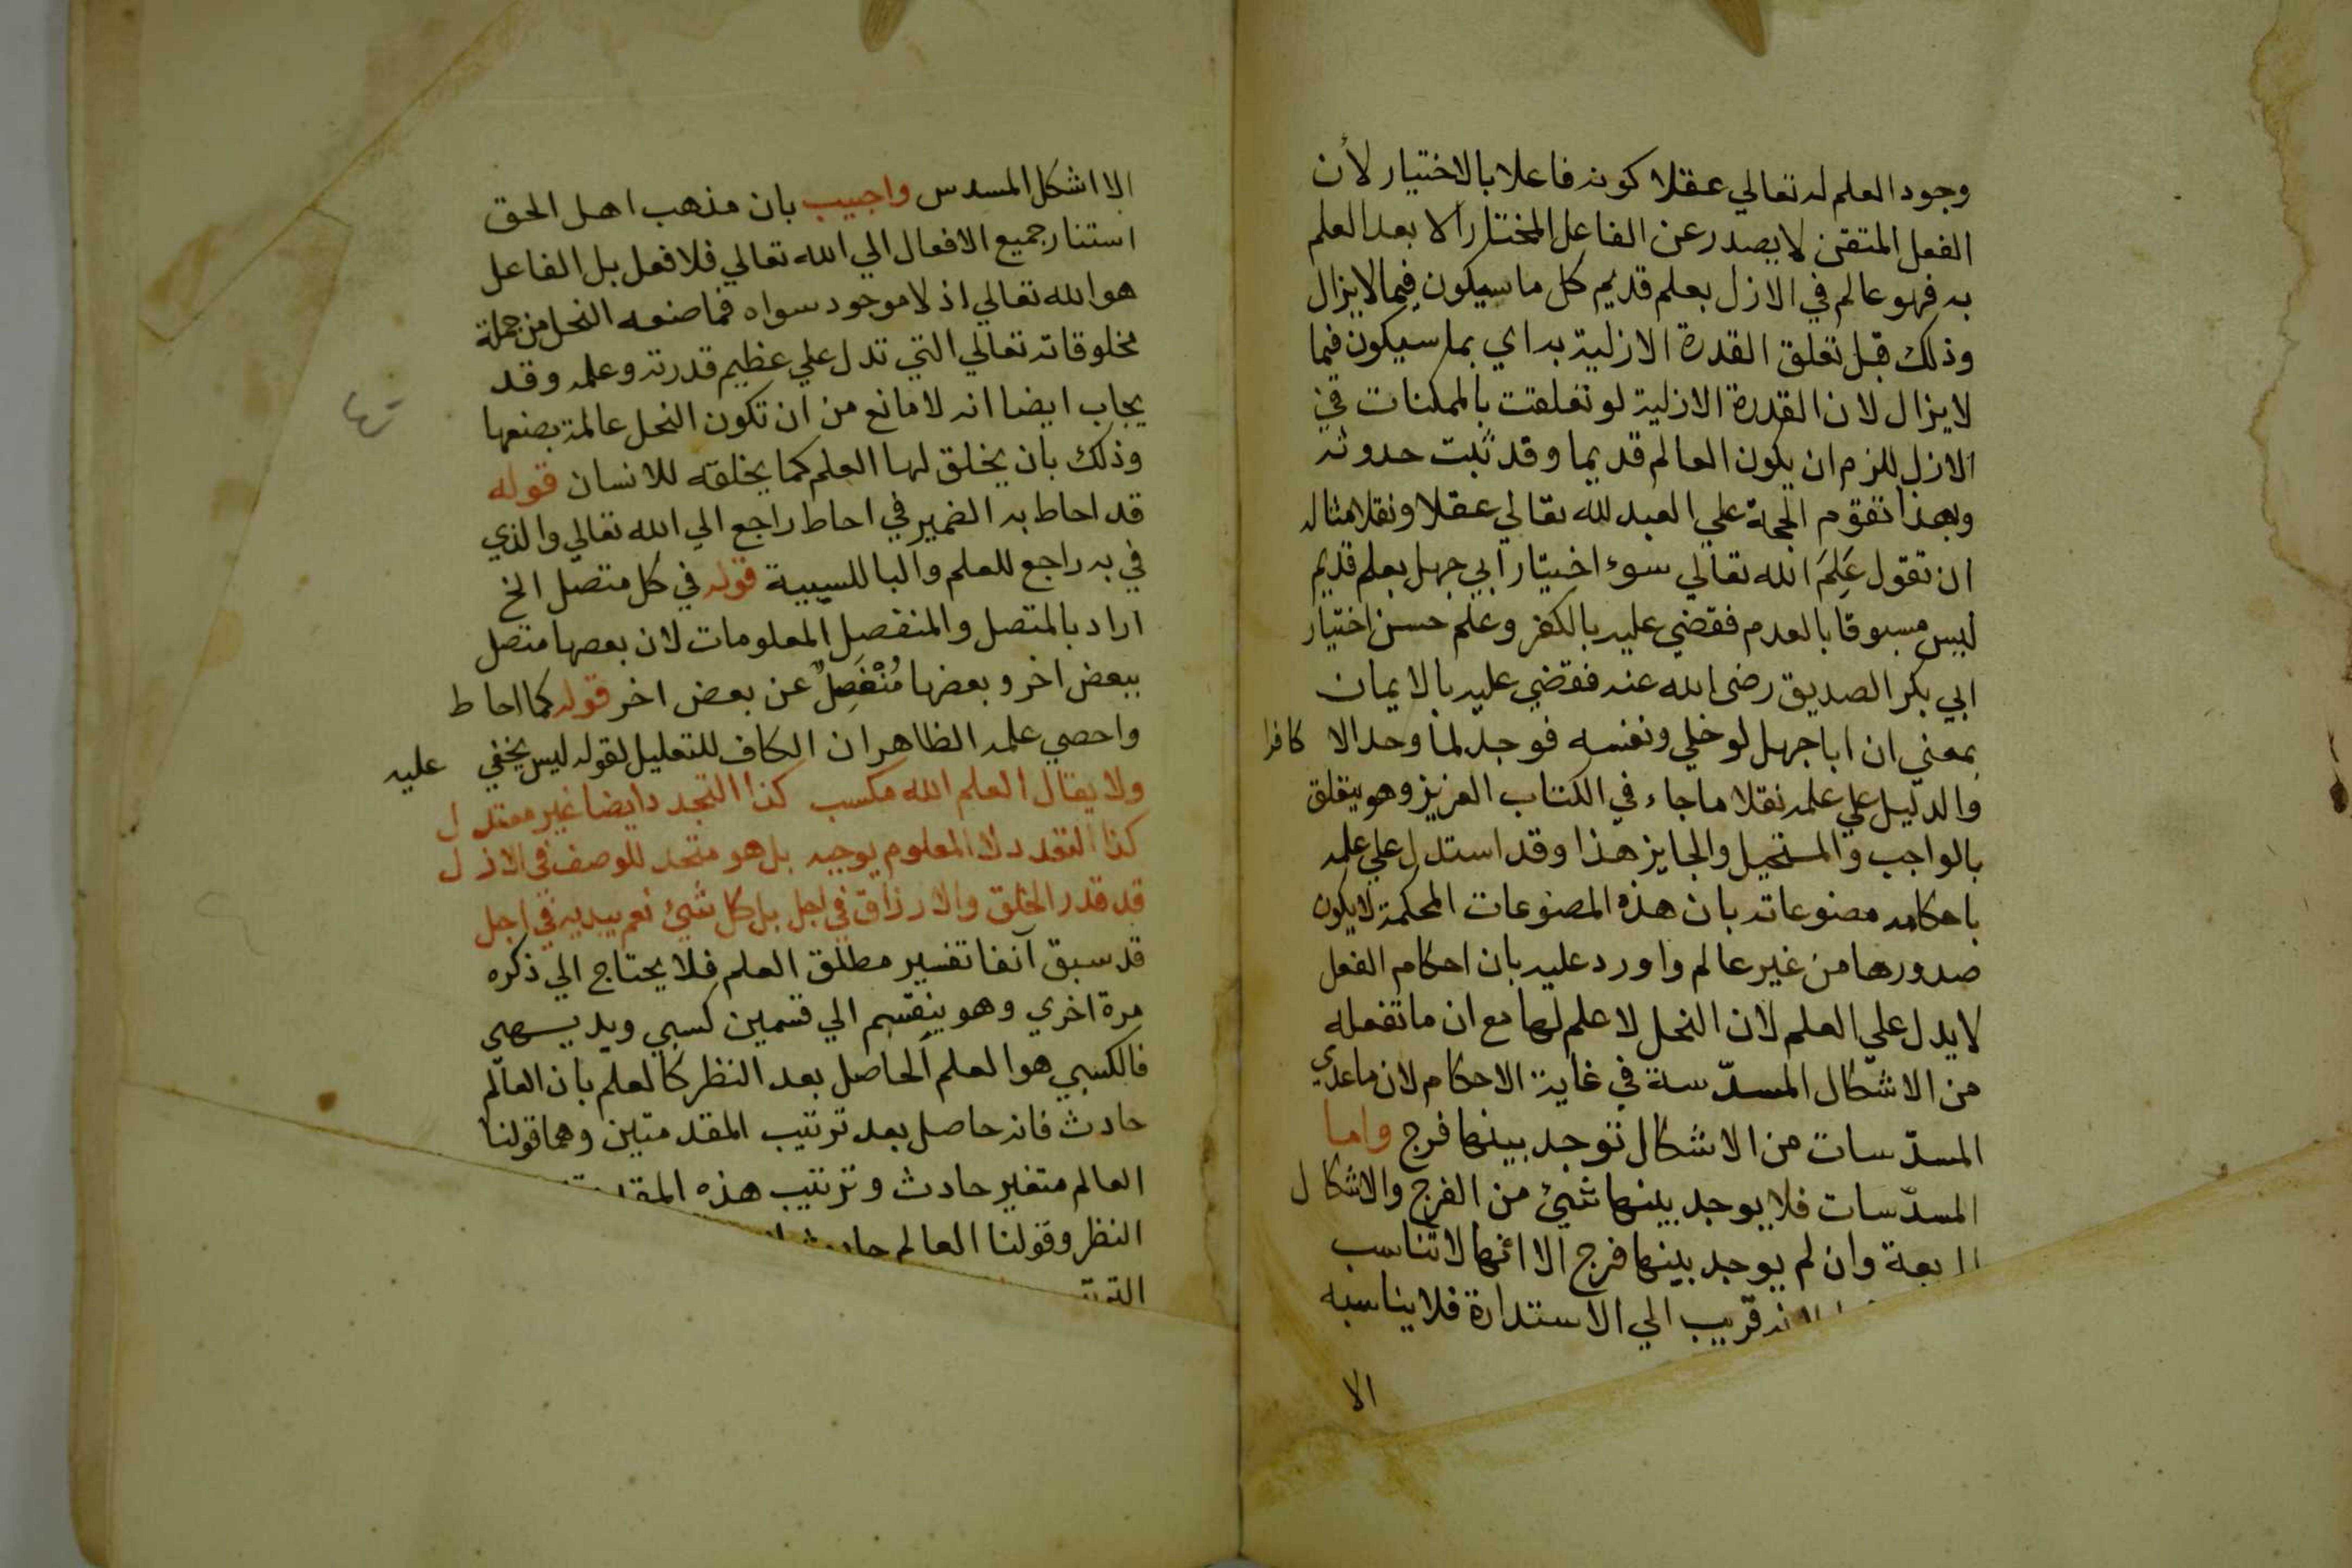 وجود العلم له تعالي عقلا كونه فاعلا بالاختيار لأن
الفعل المتقن لا يصدر عن الفاعل المختار الا بعد العلم
به فهو عالم في الازل بعلم قديم كل ما سيكون فيما لا يزال
وذلك قبل تعلق القدرة الازلية به اي بما سيكون فيما
لا يزال لان القدرة الازلية لو تعلقت بالممكنات في
الازل للزم ان يكون العالم قديما وقد ثبت حدوثه
وبهذا تقوم الحجة علي العبد لله تعالي عقلا ونقلا مثاله
ان تقول عَلِمَ الله تعالي سوء اختيار ابي جهل بعلم قديم
ليس مسبوقا بالعدم فقضي عليه بالكفر وعلم حسن اختيار
ابي بكر الصديق رضى الله عنه فقضي عليه بالايمان
بمعني ان ابا جهل لو خلي ونفسه فوجد لما وجد الا كافرا
والدليل علي علمه نقلا ما جاء في الكتاب العزيز وهو يتعلق
بالواجب والمستحيل والجايز هذا وقد استدل علي علمه
باحكامه مصنوعاته بان هذه المصنوعات المحكمة لا يكون
صدورها من غير عالم واورد عليه بان احكام الفعل
لا يدل علي العلم لان النحل لا علم لها مع ان ما تفعله
من الاشكال المسدّسة في غاية الاحكام لان ما عدي
المسدّسات من الاشكال توجد بينها فرج واما
المسدّسات فلا يوجد بينها شيئ من الفرج والاشكال
بعة وان لم يوجد بينها فرج الا انها لا تناسب
لانه قريب الي الاستدارة فلا يناسبه
الا
الا اشكل المسدس واجيب بان مذهب اهل الحق
استنار جميع الافعال الي الله تعالي فلا فعل بل الفاعل
هو الله تعالي اذ لا موجود سواه فما صنعه النحل من جملة
مخلوقاته تعالي التي تدل علي عظيم قدرته وعلمه وقد
يجاب ايضا انه لا مانع من ان تكون النحل عالمة بصنعها
وذلك بان يخلق لها العلم كما يخلقه للانسان قوله
قد احاط به الضمير في احاط راجع الي الله تعالي والذي
في به راجع للعلم والبا للسببية قوله في كل متصل الخ
اراد بالمتصل والمنفصل المعلومات لان بعصها متصل
ببعض اخر وبعضها مُنْفَصِلٌ عن بعض اخر قوله كما احاط
واحصي علمه الظاهر ان الكاف للتعليل لقوله ليس يخفي عليه
ولا يقال العلم الله مكسب كذا التجدد ايضا غير معتدل
كذا التعدد لا المعلوم يوجبه بل هو متحد للوصف في الازل
قد قدر الخلق والارزاق في اجل بل كل شيئ نعم يبديه في اجل
قد سبق آنفا تفسير مطلق العلم فلا يحتاج الي ذكره
مرة اخري وهو ينقسم الي قسمين كسبي وبديسهى
فالكسبي هو العلم الحاصل بعد النظر كالعلم بان العالم
حادث فانه حاصل بعد ترتيب المقدمتين وهما قولنا
العالم متغير حادث وترتيب هذه
النظر وقولنا العالم حادث